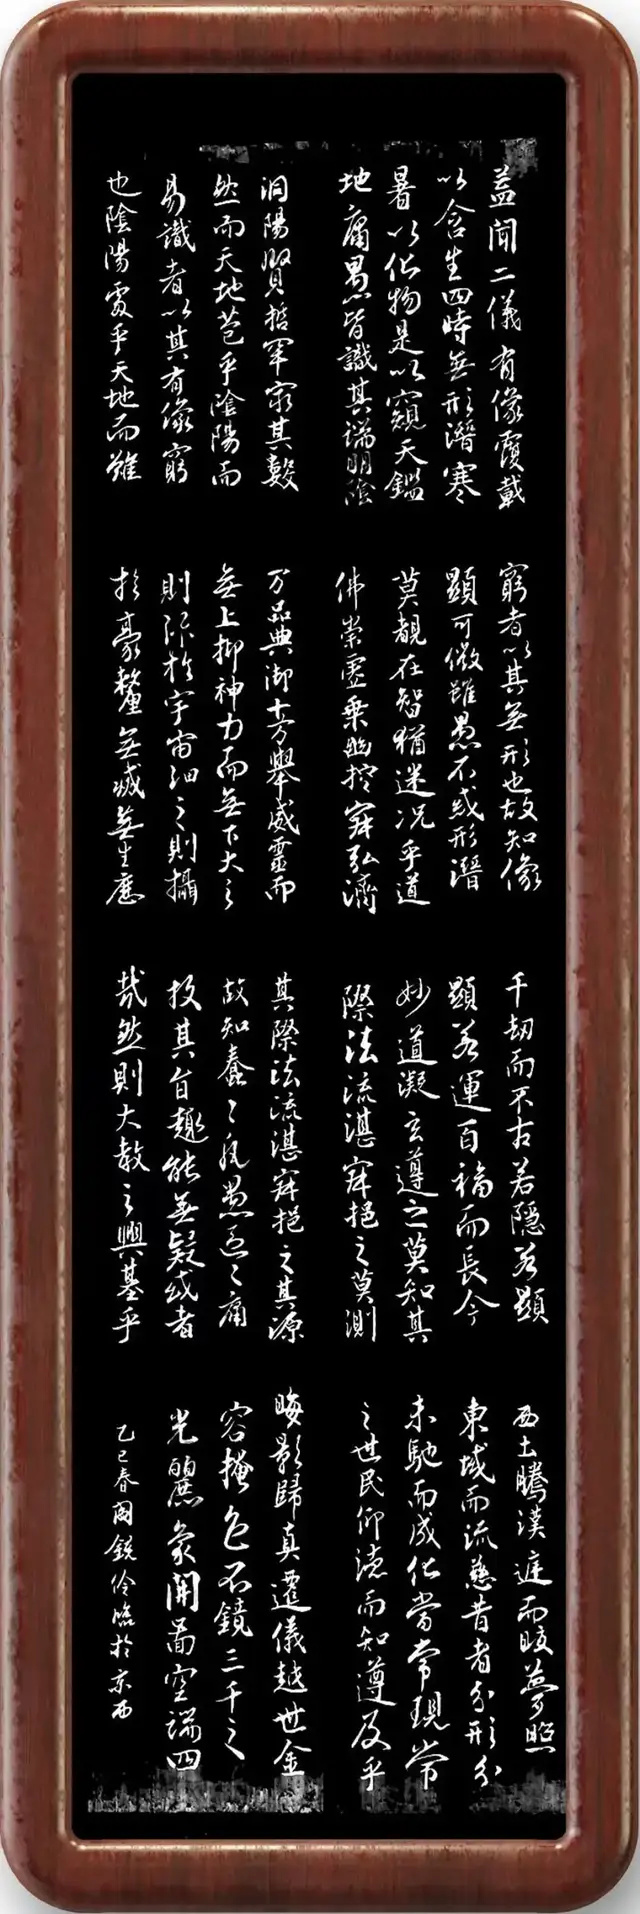 蓋聞二儀有像覆載
以含生四時無形潛寒
暑以化物是以窺天鑑
地庸愚皆識其端明陰
洞陽賢哲罕窮其數
然而天地苞乎陰陽而
易識者以其有像窮
也陰陽處乎天地而難
窮者以其無形也故知像
顯可徵雖愚不惑形潛
莫覩在智猶迷況乎道
佛崇虛乘幽控寂弘濟
万品典御十方舉威靈而
無上抑神力而無下大之
則彌於宇宙細之則攝
於豪釐無滅無生歷
千劫而不古若隱若顯
顯若運百福而長今
妙道凝玄遵之莫知其
際法流湛寂挹之莫測
其際法流湛寂挹之其源
故知蠢〻凡愚區〻庸
投其旨趣能無疑惑者
哉然則大教之興基乎
西土騰漢庭而皎夢照
東域而流慈昔者分形分
未馳而成化當常現常
之世民仰德而知遵及乎
晦影歸真遷儀越世金
容掩色不鏡三千之
光麗象開圖空端四
乙巳春國銳臨於京西